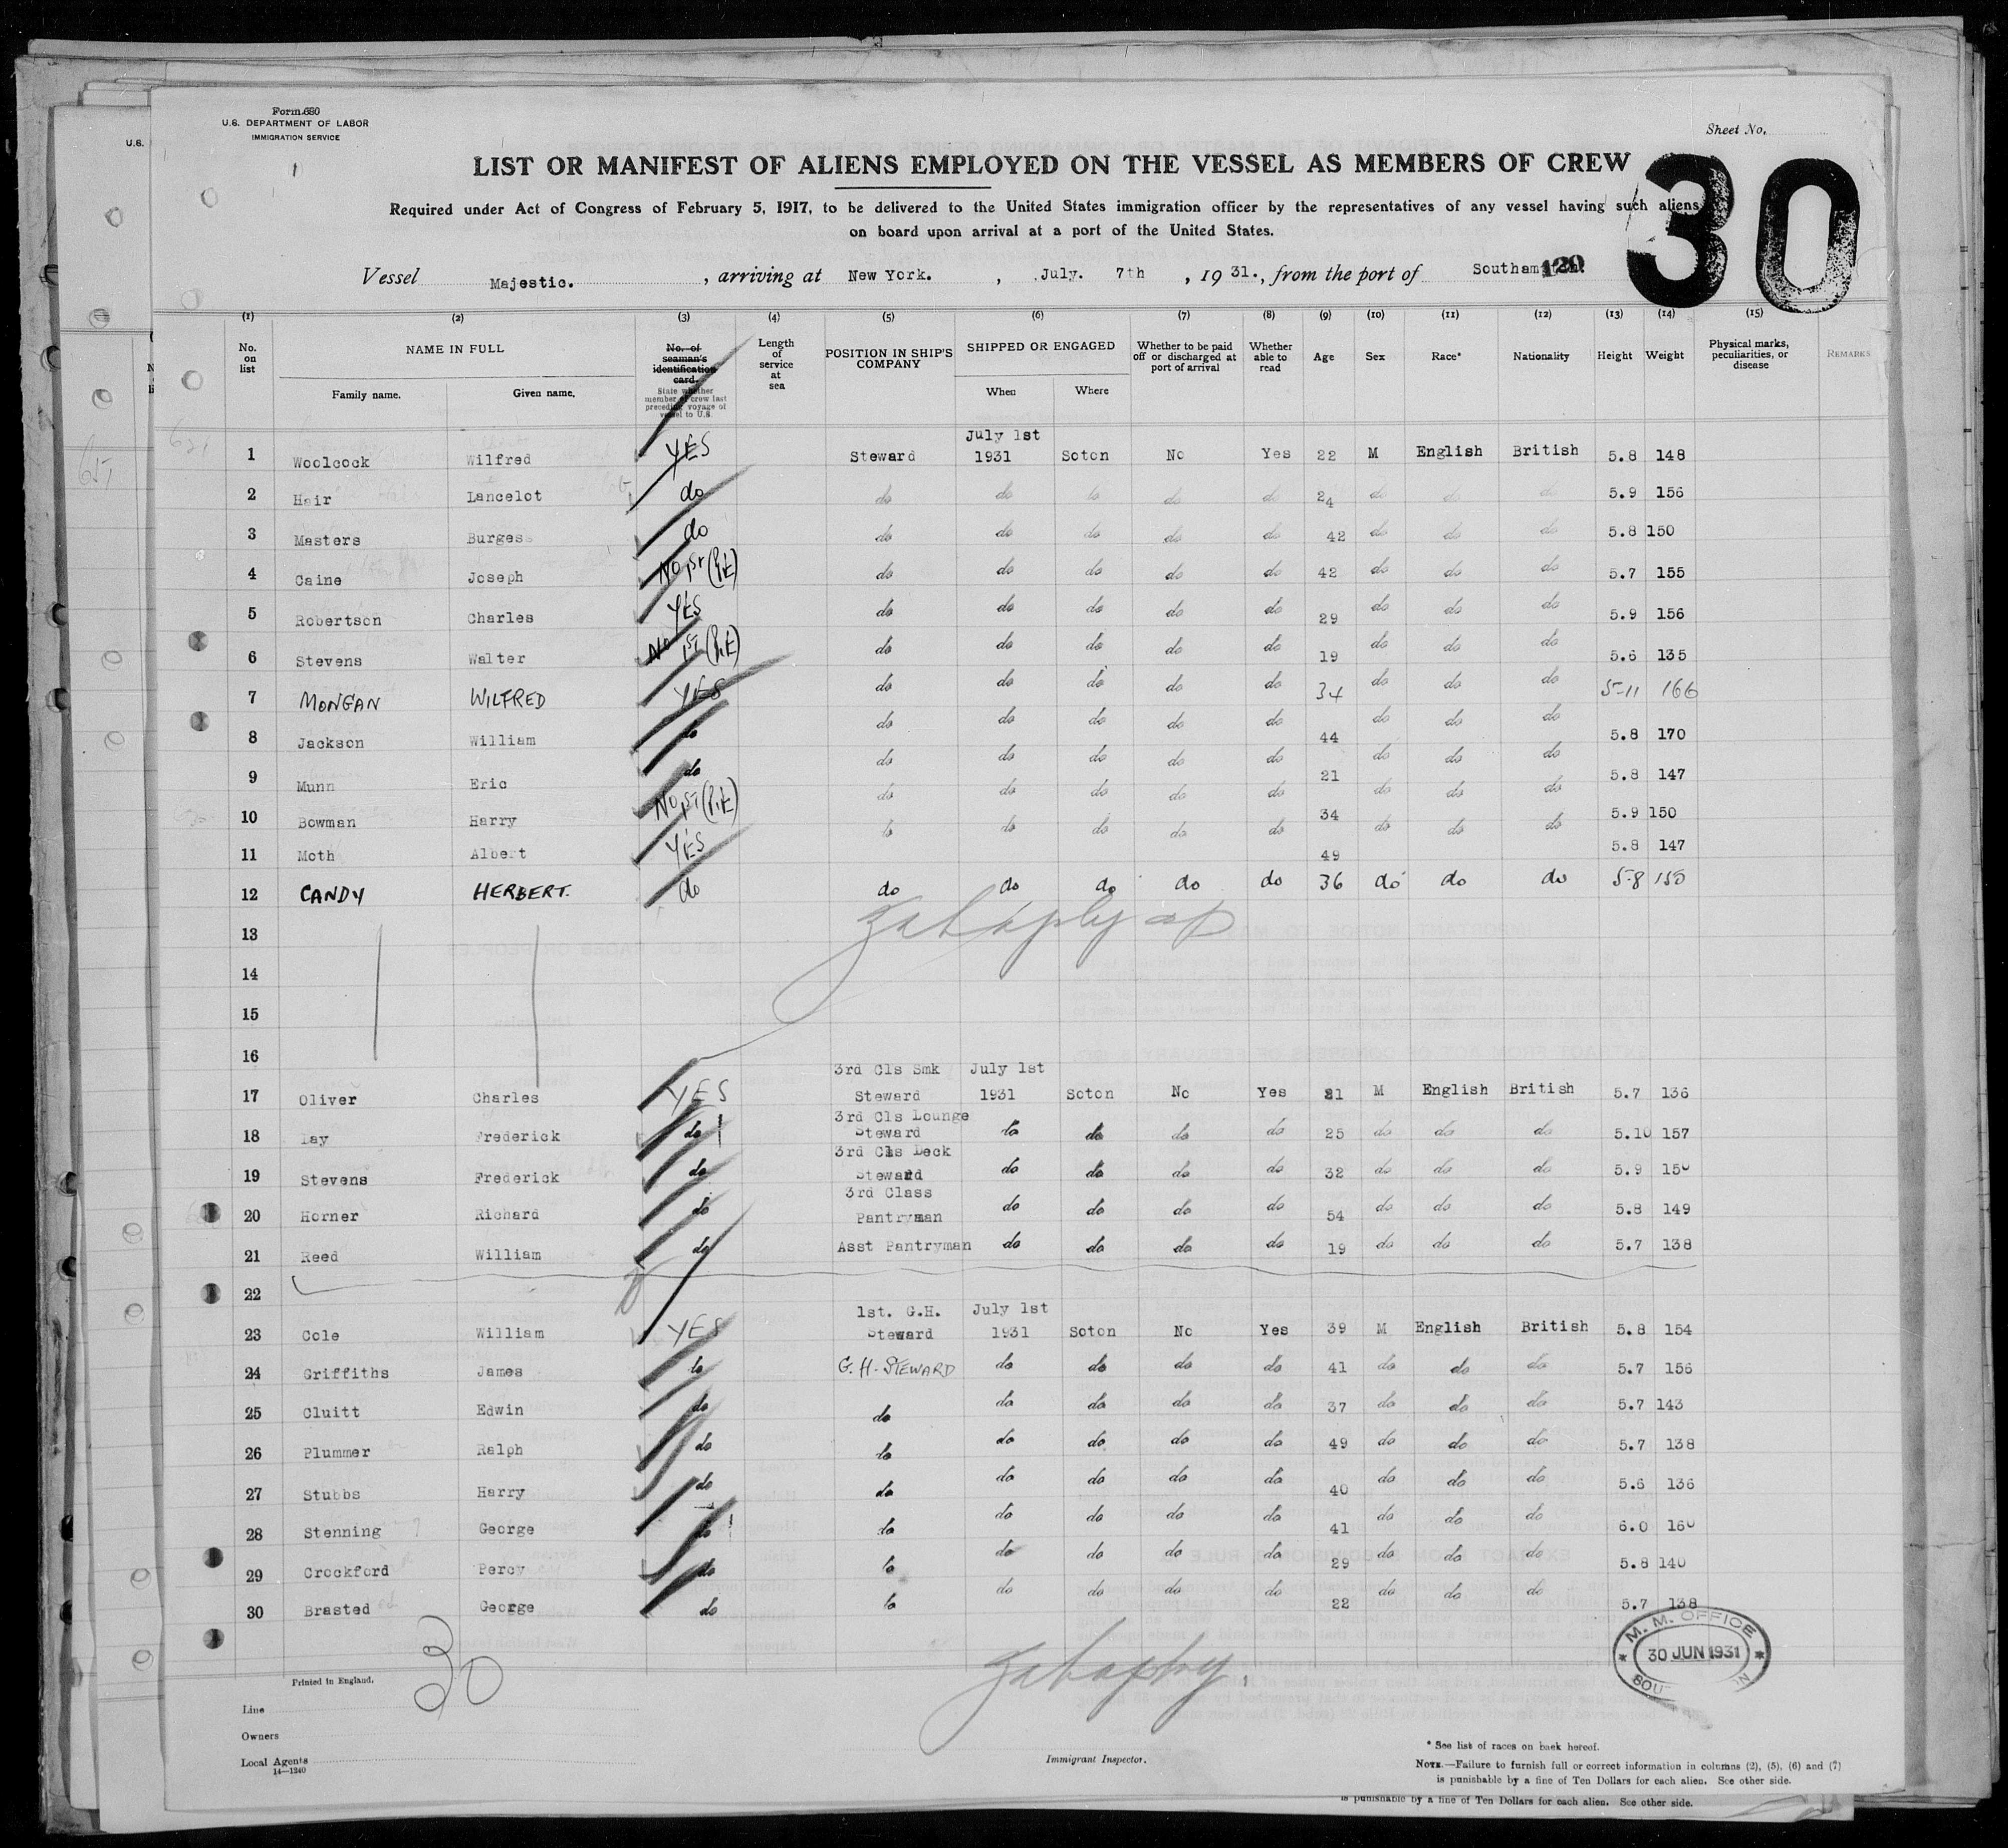 Form 680
U.S. DEPARTMENT OF LABOR
IMMIGRATION SERVICE
U.S.
Sheet No.
30
LIST OR MANIFEST OF ALIENS EMPLOYED ON THE VESSEL AS MEMBERS OF CREW
Required under Act of Congress of February 5, 1917, to be delivered to the United States immigration officer by the representatives of any vessel having such aliens
on board upon arrival at a port of the United States.
Vessel Majestic. , arriving at New York. , July. 7th , 1931., from the port of Southam 120
(1) (2) (3) (4) (5) (6) (7) (8) (9) (10) (11) (12) (13) (14) (15)
No. on list NAME IN FULL Family name. Given name. No. of seaman's identification card. State whether member of crew last preceding voyage of vessel to U.S. Length of service at sea POSITION IN SHIP'S COMPANY SHIPPED OR ENGAGED When Where Whether to be paid off or discharged at port of arrival Whether able to read Age Sex Race* Nationality Height Weight Physical marks, peculiarities, or disease REMARKS
1 Woolcock Wilfred YES Steward July 1st 1931 Soton No Yes 22 M English British 5.8 148
2 Hair Lancelot do do do do do do 24 do do do 5.9 156
3 Masters Burgess do do do do do do 42 do do do 5.8 150
4 Caine Joseph No do do do do do 42 do do do 5.7 155
5 Robertson Charles YES do do do do do 29 do do do 5.9 156
6 Stevens Walter No do do do do do 19 do do do 5.6 135
7 MONGAN WILFRED YES do do do do do 34 do do do 5-11 166
8 Jackson William do do do do do do 44 do do do 5.8 170
9 Munn Eric do do do do do do 21 do do do 5.8 147
10 Bowman Harry No do do do do do 34 do do do 5.9 150
11 Moth Albert YES do do do do do 49 do do do 5.8 147
12 CANDY HERBERT. do do do do do do 36 do do do 5-8 150
13
14
15
16
17 Oliver Charles YES 3rd Cls Smk Steward July 1st 1931 Soton No Yes 21 M English British 5.7 136
18 Lay Frederick do 3rd Cls Lounge Steward do do do do 25 do do do 5.10 157
19 Stevens Frederick do 3rd Cls Deck Steward do do do do 32 do do do 5.9 150
20 Horner Richard do 3rd Class Pantryman do do do do 54 do do do 5.8 149
21 Reed William do Asst Pantryman do do do do 19 do do do 5.7 138
22
23 Cole William YES 1st. G.H. Steward July 1st 1931 Soton No Yes 39 M English British 5.8 154
24 Griffiths James do G.H. STEWARD do do do do 41 do do do 5.7 156
25 Cluitt Edwin do do do do do do 37 do do do 5.7 143
26 Plummer Ralph do do do do do do 49 do do do 5.7 138
27 Stubbs Harry do do do do do do 40 do do do 5.6 136
28 Stenning George do do do do do do 41 do do do 6.0 160
29 Crockford Percy do do do do do do 29 do do do 5.8 140
30 Brasted George do do do do do do 22 do do do 5.7 138
M. M. OFFICE
30 JUN 1931
30
Printed in England.
Line
Owners
Local Agents
14—1240
Immigrant Inspector.
* See list of races on back hereof.
NOTE.—Failure to furnish full or correct information in columns (2), (5), (6) and (7)
is punishable by a fine of Ten Dollars for each alien. See other side.
is punishable by a fine of Ten Dollars for each alien. See other side.